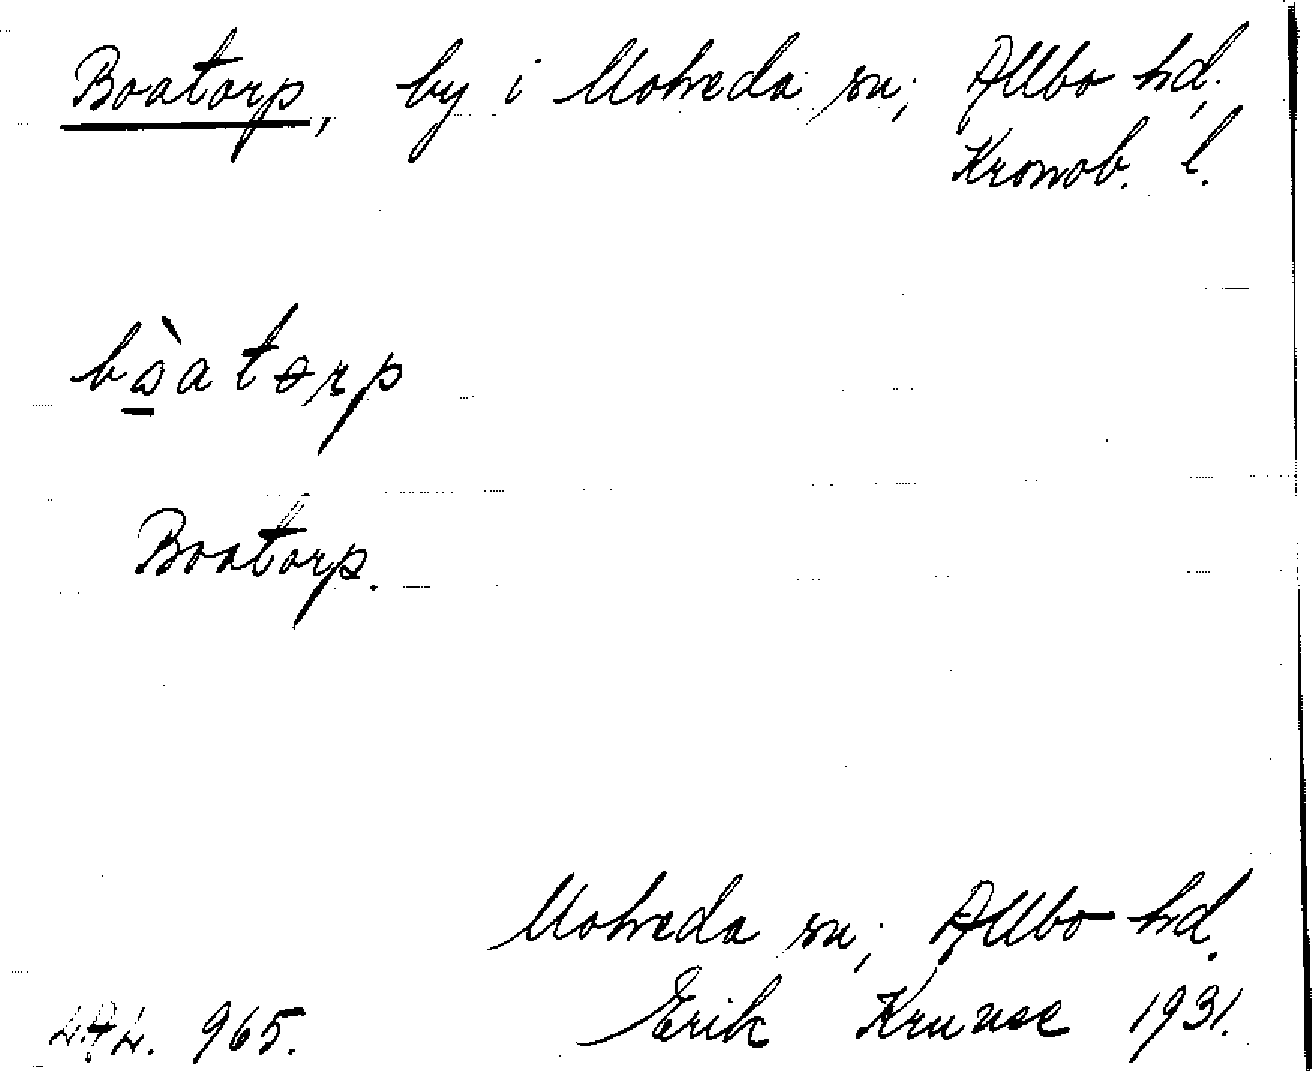 Boatorp, by i Moheda sn; Allbo hd.
Kronob. l.
bò̱atorp
Boatorp.
Moheda sn; Allbo hd.
Erik Kruuse 1931.
965.